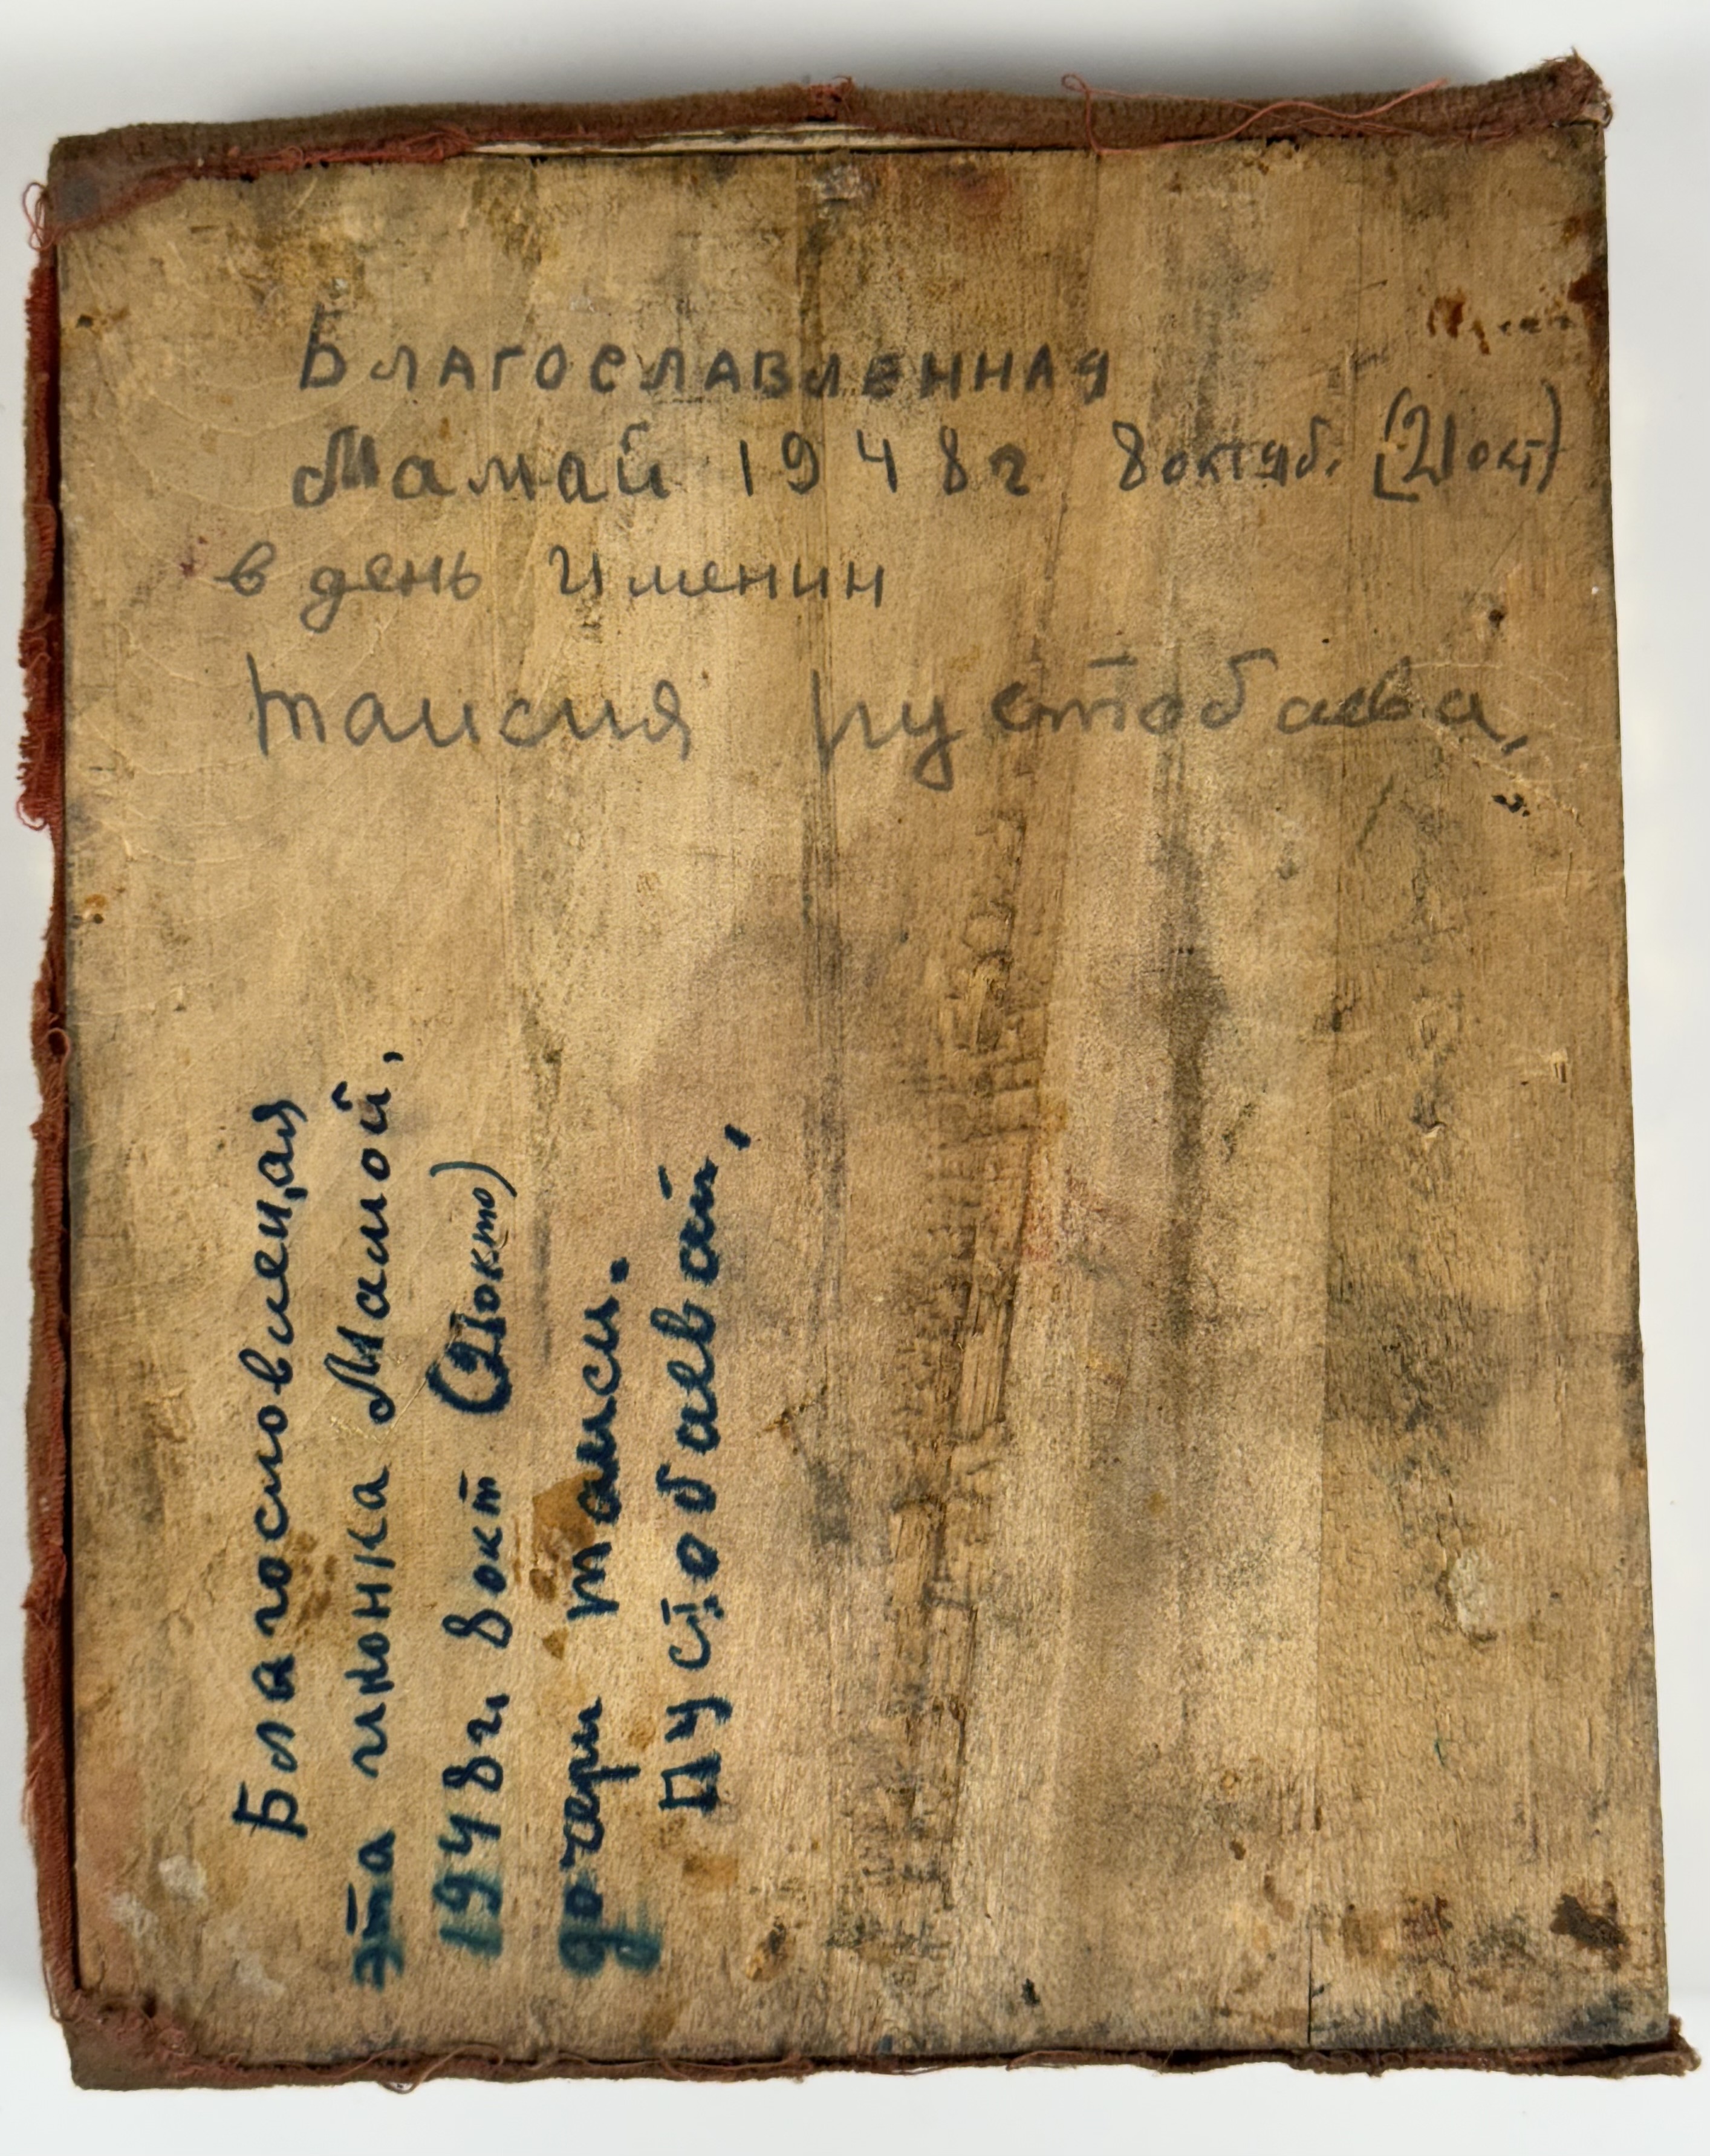 БЛАГОСЛАВЛЕННАЯ
Мамай 1948г 8 октяб. (21 окт)
в день Именин
таисия пустобаева,
Благословленая
эта иконка Мамой,
1948г. 8 окт (21 окто)
дочери таиси.
Пустобаевай,